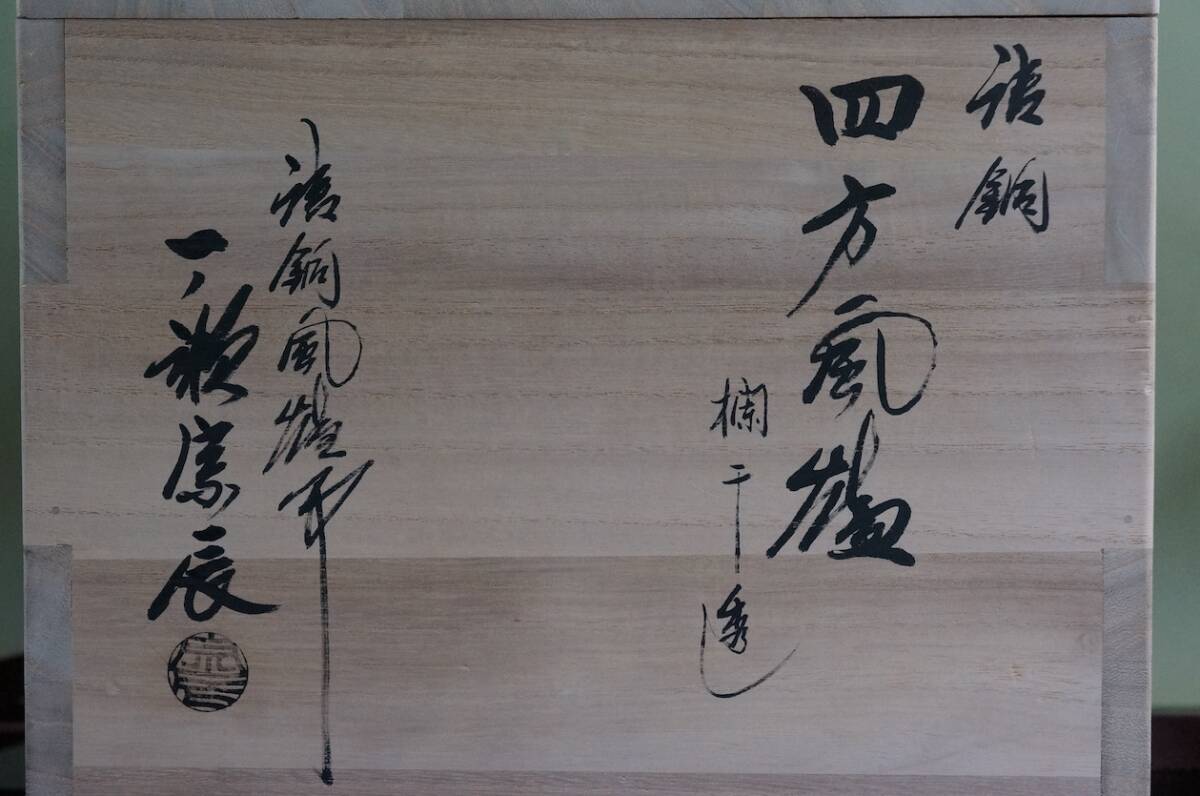 唐銅
四方風爐
欄干透
唐銅風爐師
一ノ瀬宗辰